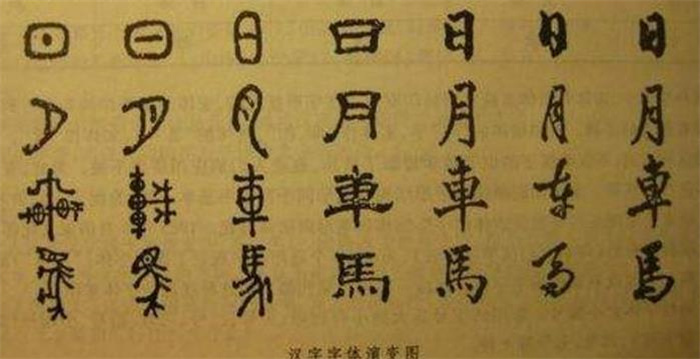 日日日日日日日
月月月月月月月
車車車車車车車
馬馬馬馬馬马馬
汉字字体演变图